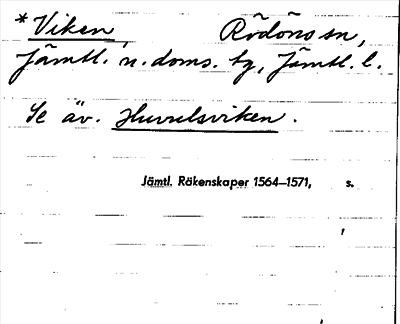 *Viken, Rödöns sn,
Jämtl. n. doms. tg, Jämtl. l.
Se äv. Huvulsviken.
Jämtl. Räkenskaper 1564–1571, s.